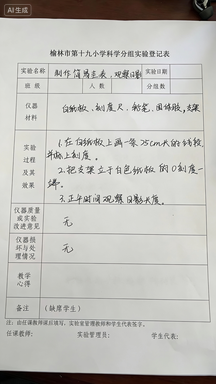 AI生成
榆林市第十九小学科学分组实验登记表
实验名称 制作简易圭表，观测日影 实验日期
班级 人数 分组数
仪器
材料
白纸板、刻度尺、铅笔、固体胶，支架
实验
过程
及其
效果
1.在白纸板上画一条25cm长的线段
并标上刻度。
2.把支架立于白色纸板的0刻度一
端。
3.正午时间观察日影长度。
仪器质量
或实验
改进意见
无
仪器损
坏与处
理情况
无
教学
心得
备注 （缺席学生）
注：由任课教师课后填写，实验室管理教师和学生代表签字。
任课教师： 实验管理员： 学生代表：